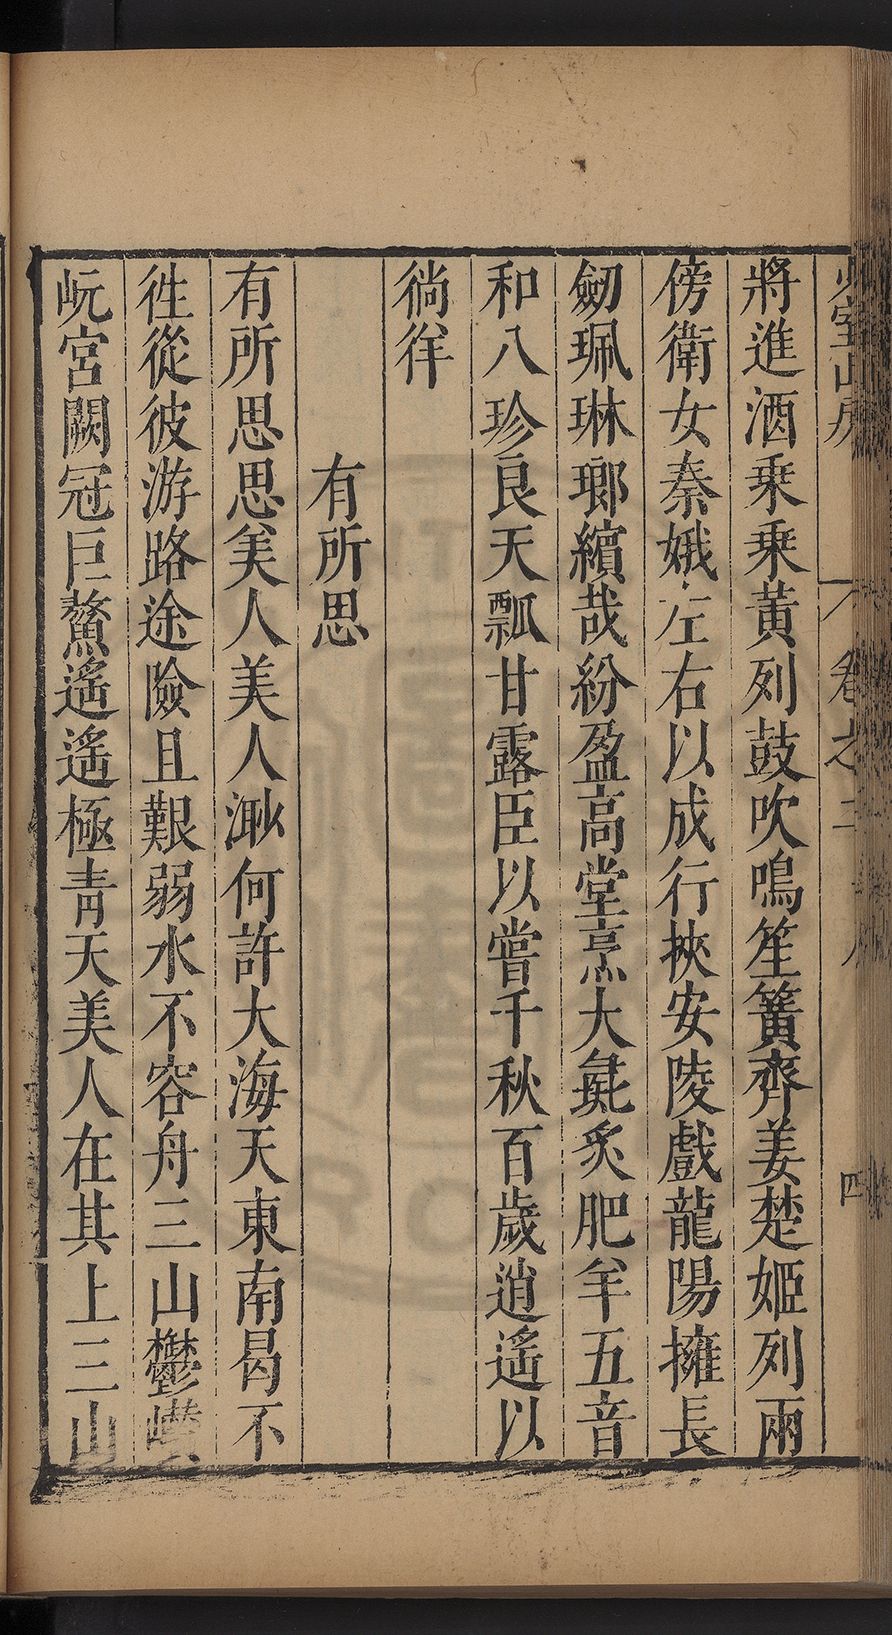 少室山房 卷之二 四
將進酒乗乗黃列鼓吹鳴笙簧齊姜楚姬列兩
傍衛女秦娥左右以成行挾安陵戲龍陽擁長
劒珮琳瑯繽哉紛盈高堂烹大𣫭炙肥羊五音
和八珍良天瓢甘露臣以嘗千秋百歲逍遙以
徜徉
有所思
有所思思美人美人渺何許大海天東南曷不
徃從彼游路途險且艱弱水不容舟三山鬱巑
岏宮闕冠巨鰲遙遙極靑天美人在其上三山